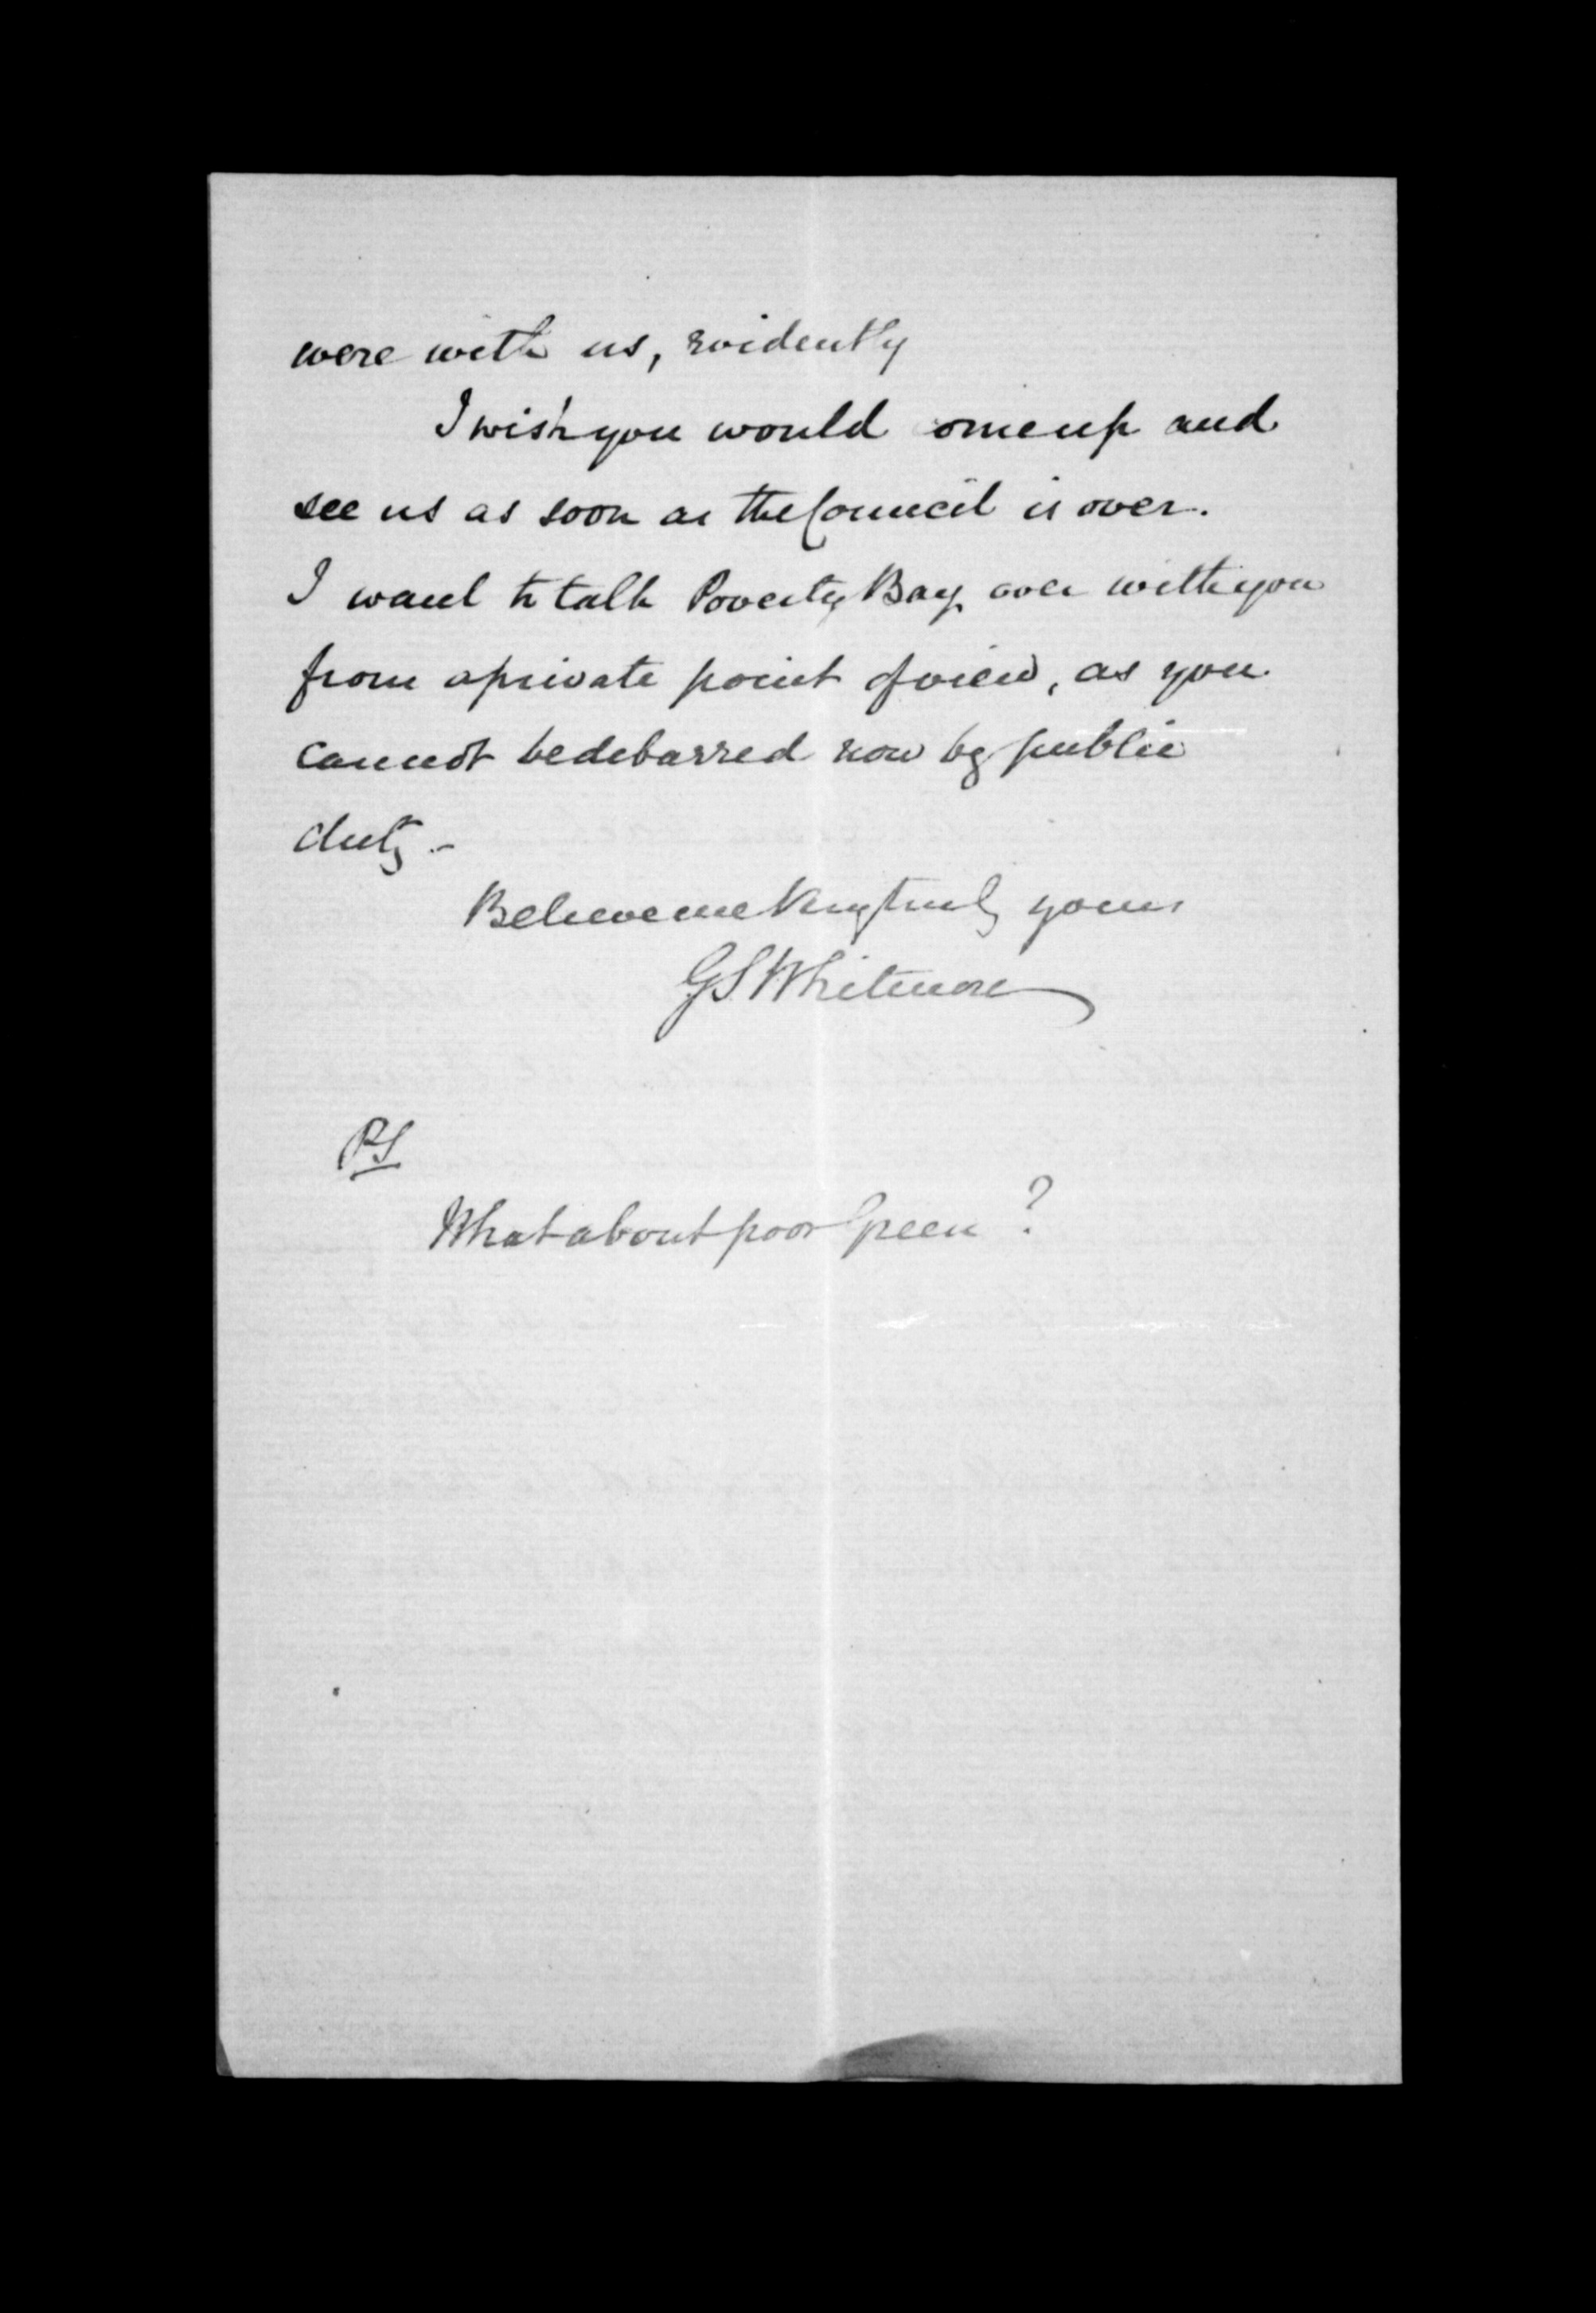 were with us, evidently
I wish you would come up and
see us as soon as the Council is over.
I want to talk Poverty Bay over with you
from a private point of view, as you
cannot be debarred now by public
duty -
Believe me Very truly yours
GS Whitmore
PS
What about poor Green ?